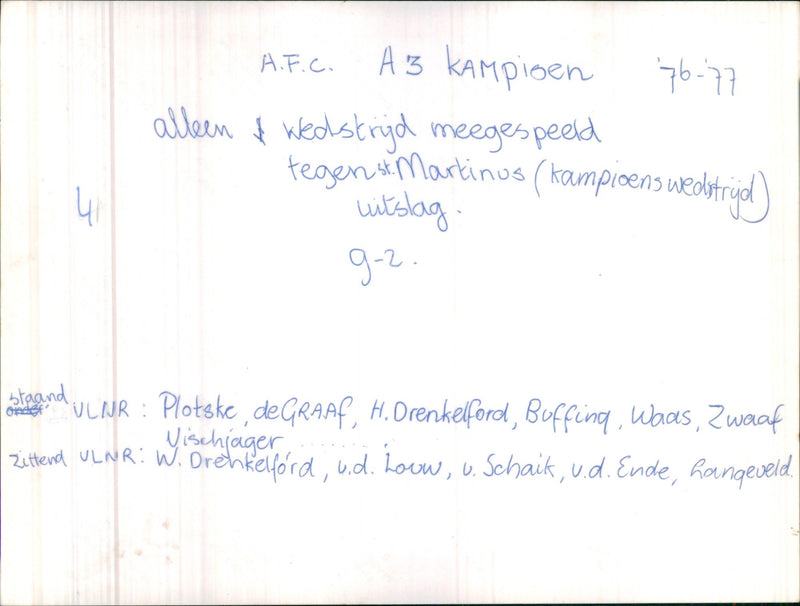 A.F.C. A3 KAMPioen '76-'77
alleen 1 wedstrijd meegespeeld
tegen st. Martinus (kampioenswedstrijd)
4
uitslag.
9-2.
staand
onder VLNR: Plotske, de GRAAf, H. Drenkelford, Buffing, Waas, Zwaaf
Vischjager .........
Zittend VLNR: W. Drenkelford, v.d. Louw, v. Schaik, v.d. Ende, Langeveld.